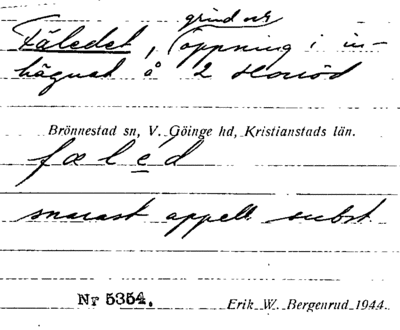 grind och
Fäledet, öppning i in-
hägnad å 2 Horröd
Brönnestad sn, V. Göinge hd, Kristianstads län.
fæléd
snarast appell subst
Nr 5354. Erik W. Bergenrud 1944.